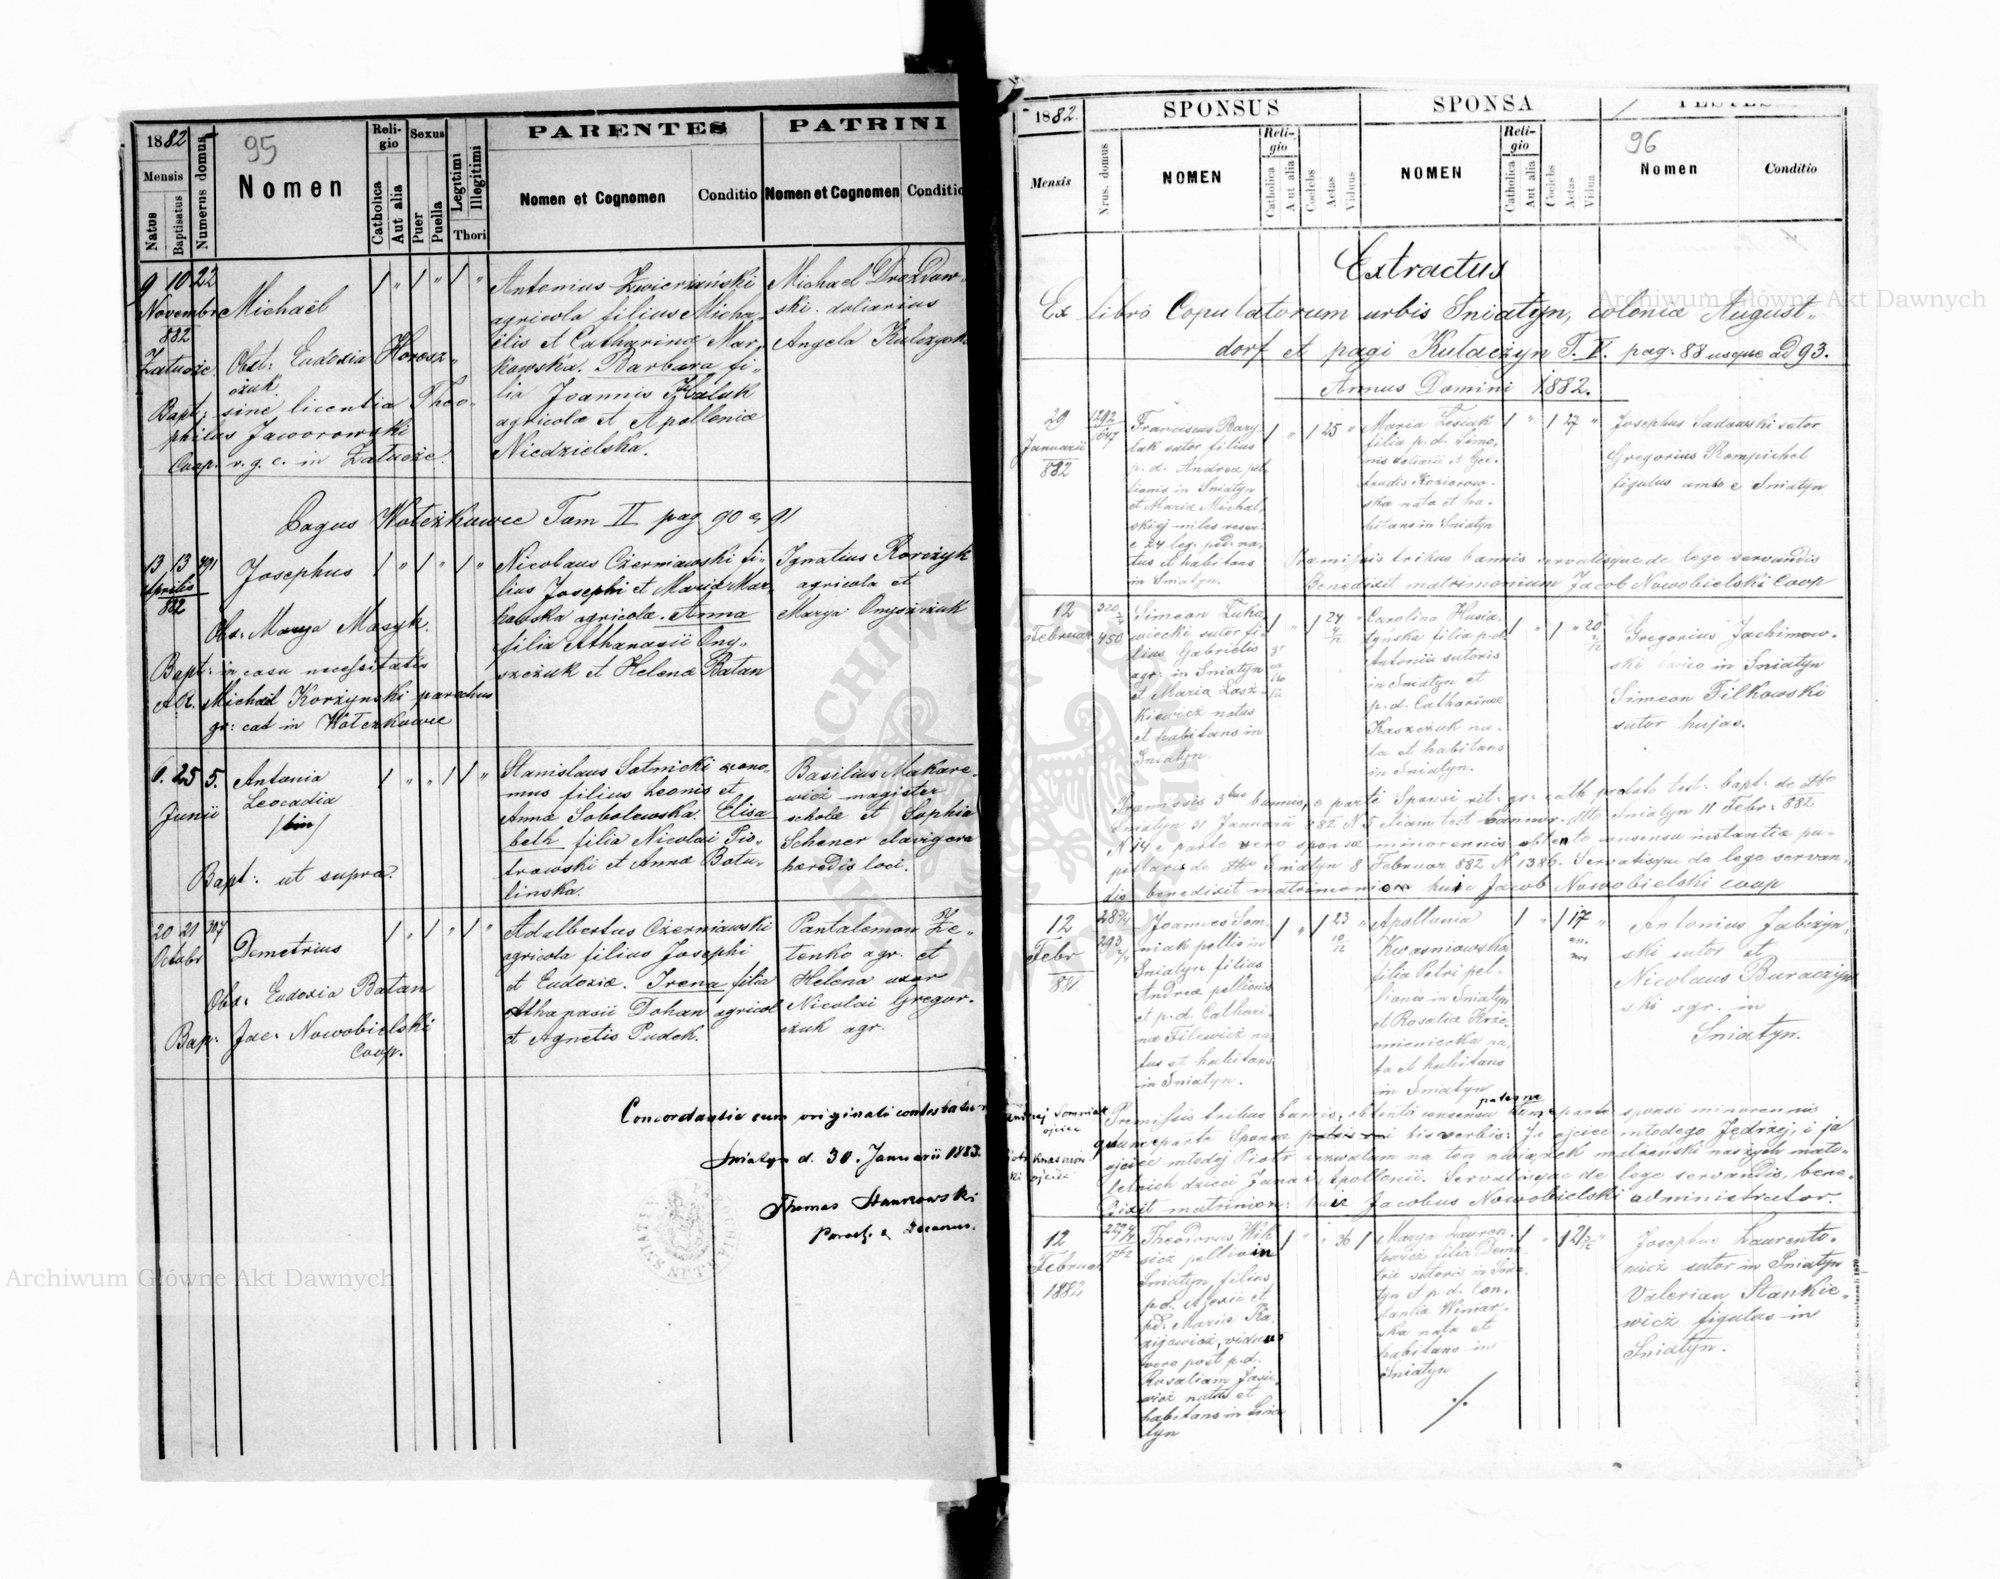 1882
Mensis
Natus
Baptisatus
Numerus domus
95
Nomen
Religio
Catholica
Aut alia
Sexus
Puer
Puella
Legitimi
Illegitimi
Thori
PARENTES
Nomen et Cognomen
Conditio
PATRINI
Nomen et Cognomen
Conditio
9 10 22
Novembre
882
Michaël
Obst: Eudoxia Horosz
czuk
Bapt: sine licentia Theo-
philus Jaworowski
Coop. r. g. c. in Załucze.
Antonius Zwierzański
agricola filius Micha-
ëlis et Catharina Mar-
kowska. Barbara fi-
lia Joannis
agricolæ et Apolloniæ
Niedzielska.
Michael Drozdow-
ski doliarius
Angela
Pagus Wołczkowce Tom II pag 90 & 91
13 13 491
Aprilis
882
Josephus
Obs: Marya Masyk.
Bapt: in casu necessitatis
A.R. Michaël Korzynski parochus
gr: cat in Wołczkowce
Nicolaus Czerniawski fi-
lius Josephi et Maria Mar-
kowska agricola. Anna
filia Athanasii Ony-
szczuk et Helena Batan
Ignatius
agricola et
Marya Onyszczuk
6. 25 5.
Junii
Antonia
Leocadia
/bin/
Bapt: ut supra.
Stanislaus Sotnicki œcono-
mus filius Leonis et
Anna Sobolewska. Elisa
beth filia Nicolai Pio-
trowski et Annæ Botu-
linska.
Basilius Makare-
wicz magister
scholæ et Sophia
Schener clavigera
hæredis loci.
20 21 307
Octobr
Demetrius
Obs: Eudoxia Batan
Bap: Jac: Nowobielski
Coop.
Adalbertus Czerniawski
agricola filius Josephi
et Eudoxiæ. Irena filia
Athanasii Dohan agricol
et Agnetis Pudek.
Pantalemon Ze-
tenko agr. et
Helena uxor
Nicolai Gregor-
czuk agr.
Concordantia cum originali
Sniatyn d. 30. Januarii 1883.
Thomas
Paroch. & Decanus.
1882.
Mensis
SPONSUS
Nrus. domus
NOMEN
Religio
Catholica
Aut alia
Coelebs
Aetas
Viduus
SPONSA
NOMEN
Religio
Catholica
Aut alia
Coelebs
Aetas
Vidua
TESTES
96
Nomen
Conditio
Extractus
Ex libro Copulatorum urbis Sniatyn, coloniæ August-
dorf et pagi Kułaczyn T. V. pag: 88 usque ad 93.
Annus Domini 1882.
29
Januarii
882
1292
1047
Franciscus Bary-
lak sutor filius
p. d. Andreæ pel-
lionis in Sniatyn
et Maria Michal-
skiej miles reser:
e 24 leg. ped. na-
tus et habitans
in Sniatyn.
25
Maria Lesiak
filia p. d. Simo-
nis doliarii et Ger-
trudis Koziorow-
ska nata et ha-
bitans in Sniatyn
27
Josephus Sadowski sutor
Gregorius Rompichel
figulus ambo e Sniatyn
Præmissis tribus bannis servatisque de lege servandis
Benedixit matrimonium Jacob Nowobielski Coop
12
Februar
450
Simeon Luka-
wiecki sutor fi-
lius Gabrielis
agr: in Sniatyn
et Maria Łasz-
kiewicz natus
et habitans in
Sniatyn.
24
Carolina Husia-
tynska filia p.d.
Antonii sutoris
in Sniatyn et
p. d. Catharinæ
Kaszczuk na-
ta et habitans
in Sniatyn.
20
Gregorius Jachimow-
ski lanio in Sniatyn
Simeon Filkowski
sutor hujas.
Præmissis 3bus bannis, e parte Sponsi rit: gr: cath prolato test: bapt: de dto
Sniatyn 31 Januarii 882 N 5 etiam test bannor. dto Sniatyn 11 Febr: 882
N 14 e parte vero sponsæ minorennis obtento consensu instantiæ pu-
pillaris de dto Sniatyn 8 Februar 882 N 1386. Servatisque de lege servan-
dis benedixit matrimonium huic Jacob Nowobielski coop
12
Febr
882
Joannes Som-
niak pellio in
Sniatyn filius
Andreæ pellionis
et p.d. Cathari-
næ Filewicz na-
tus et habitans
in Sniatyn.
23
Apollonia
Kwasniowska
filia Petri pel-
lionis in Sniatyn
et Rosaliæ Krze-
mieniecka na-
ta et habitans
in Sniatyn
17
Antonius Jabczyn-
ski sutor et
Nicolaus Buraczyn
ski agr. in
Sniatyn.
ojciec
Præmissis tribus bannis, obtento consensu paterno tam e parte sponsi minorennis
quam e parte Sponsæ his verbis: Ja ojciec młodego Jędrzej, i ja
ojciec młodej Piotr zezwalam na ten związek małżeński naszych mało-
letnich dzieci Jana i Apollonii. Servatisque de lege servandis, bene-
dixit matrimon: huic Jacobus Nowobielski administrator.
12
Februar
1882
Theodorus Wik
sicz pellio in
Sniatyn, filius
p.d. Alexii et
p.d. Maria Ra-
gijewicz, viduus
vero post p.d.
Rosaliam
natus et
habitans in Snia
tyn
36
Marya Lauren-
towicz filia Deme-
trii sutoris in Snia-
tyn et p. d. Con-
stantia Winiar-
ska nata et
habitans in
Sniatyn
21
Josephus Laurento-
wicz sutor in Sniatyn
Valerian Stankie-
wicz figulus in
Sniatyn.
Archiwum Główne Akt Dawnych
Archiwum Główne Akt Dawnych